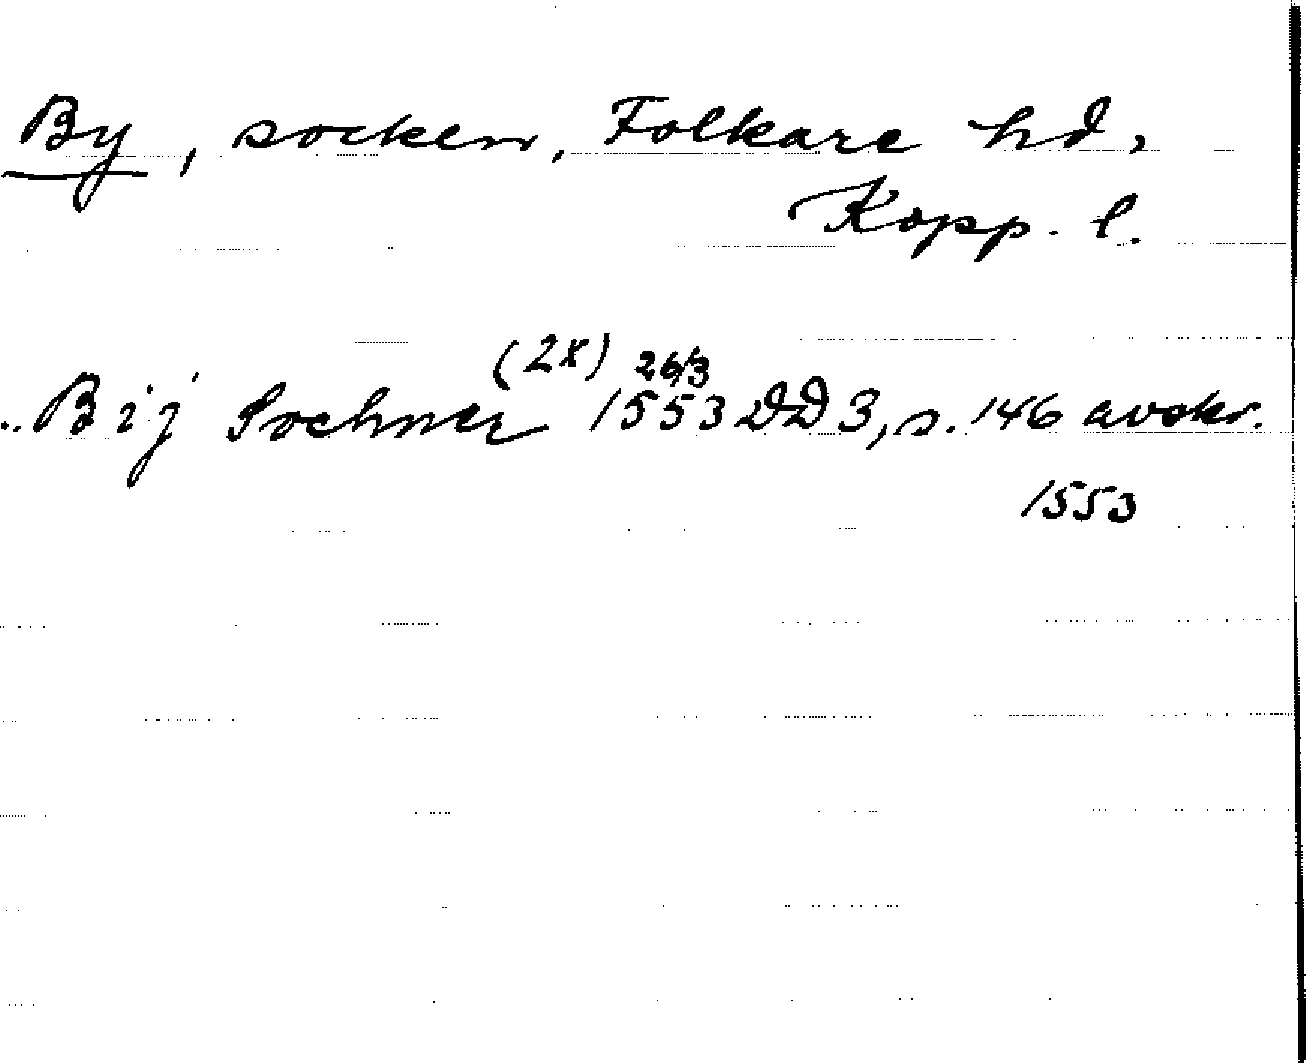 By, socken, Folkare hd,
Kopp. l.
(2x) 26/3
.. Bij Sochner 1553 DD 3, s. 146 avskr.
1553